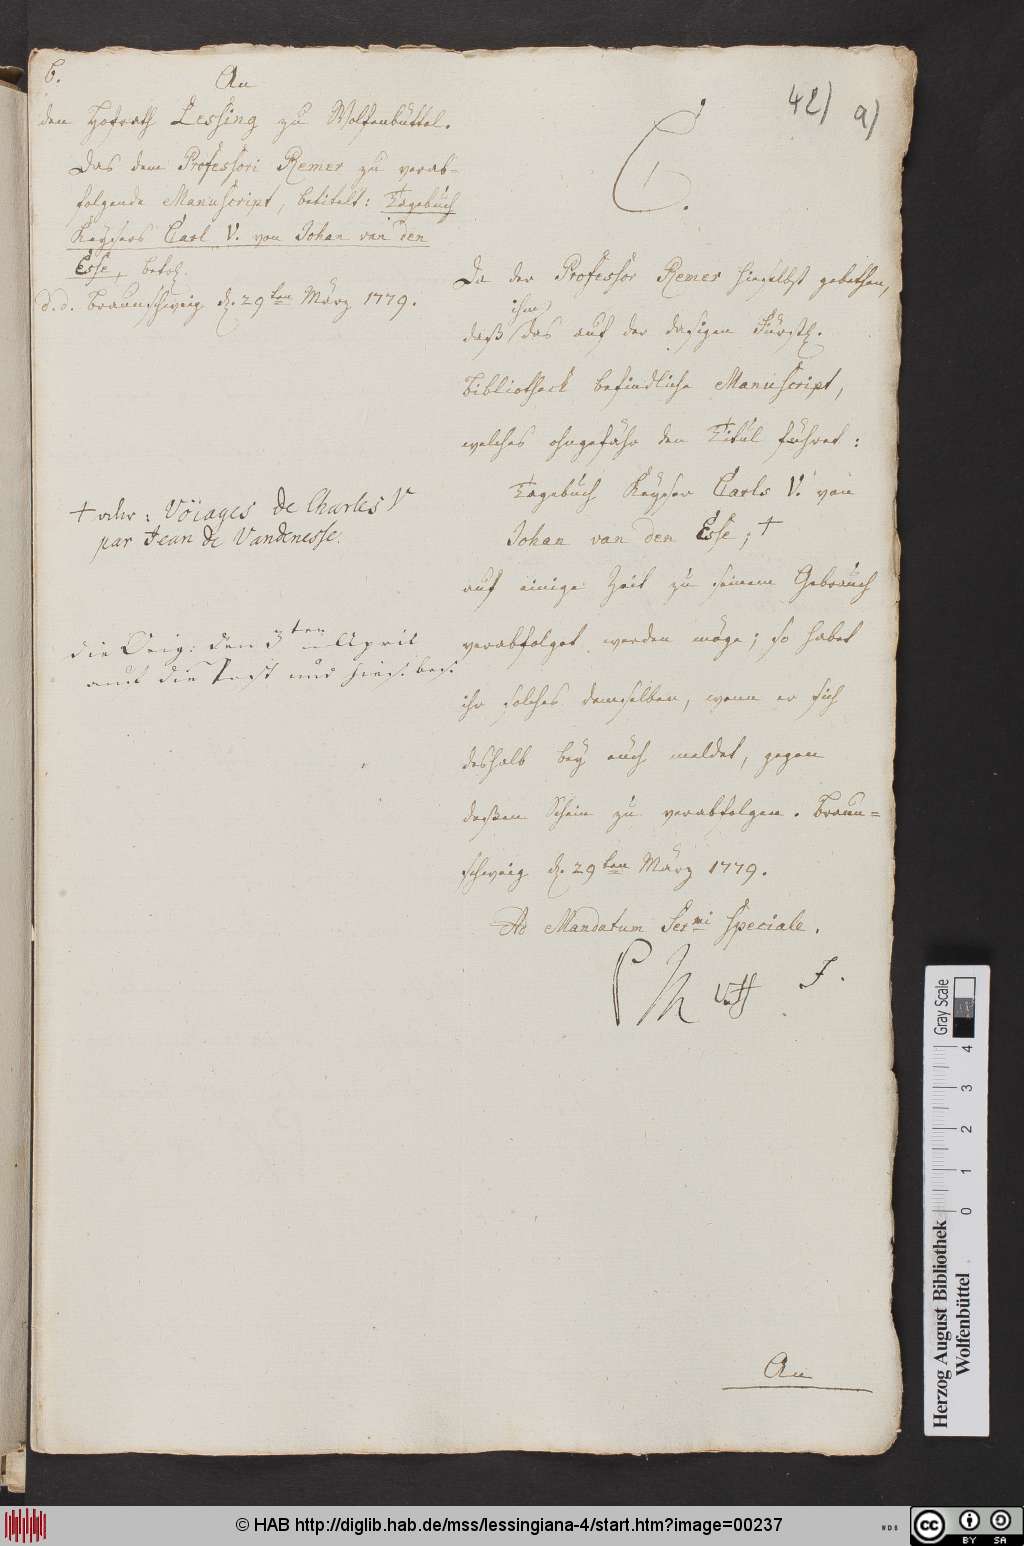 C.
An
den Hofrath Lessing zu Wolfenbüttel.
Das dem Professori Remer zu verab=
folgende Manuscript, betitelt: Tagebuch
Kaysers Carl V. von Johan van den
Esse, betrf.
d. d. Braunschweig d. 29ten März 1779.
42) a)
C.
Da der Professor Remer hieselbst gebethen,
ihm
daß das auf der dasigen Fürstl.
Bibliotheck befindliche Manuscript,
welches ohngefähr den Titul führet:
Tagebuch Kayser Carls V. von
Johan van den Esse; +
auf einige Zeit zu seinem Gebrauch
verabfolget werden möge; so habet
ihr solches demselben, wenn er sich
deshalb bey euch meldet, gegen
deßen Schein zu verabfolgen. Braun=
schweig d. 29ten März 1779.
Ad Mandatum Sermi speciale.
+ oder: Vöiages de Charles V
par Jean de Vandenesse.
die Orig: den 3ten April
auf die Post und hies.
An
Gray Scale
0 1 2 3 4
Herzog August Bibliothek
Wolfenbüttel
© HAB http://diglib.hab.de/mss/lessingiana-4/start.htm?image=00237
cc BY SA